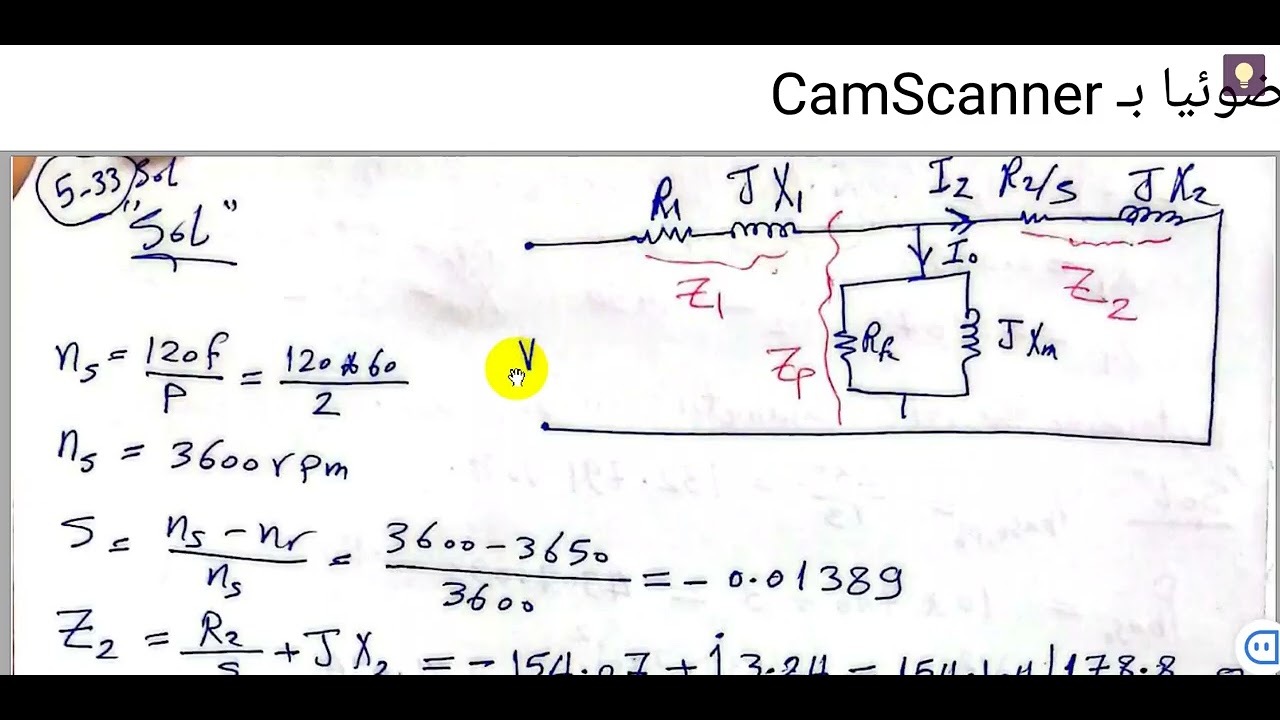 ضوئيا بـ CamScanner
5-33 Sol
"Sol"
R1 JX1 I2 R2/S JX2
Z1 I0 Z2
V Zp Rfe JXm
ns = 120f / P = 120*60 / 2
ns = 3600 rpm
S = ns - nr / ns = 3600 - 3650 / 3600 = - 0.01389
Z2 = R2 / s + JX2 = - 154.07 + j 3.24 = 154.1.4 /178.8